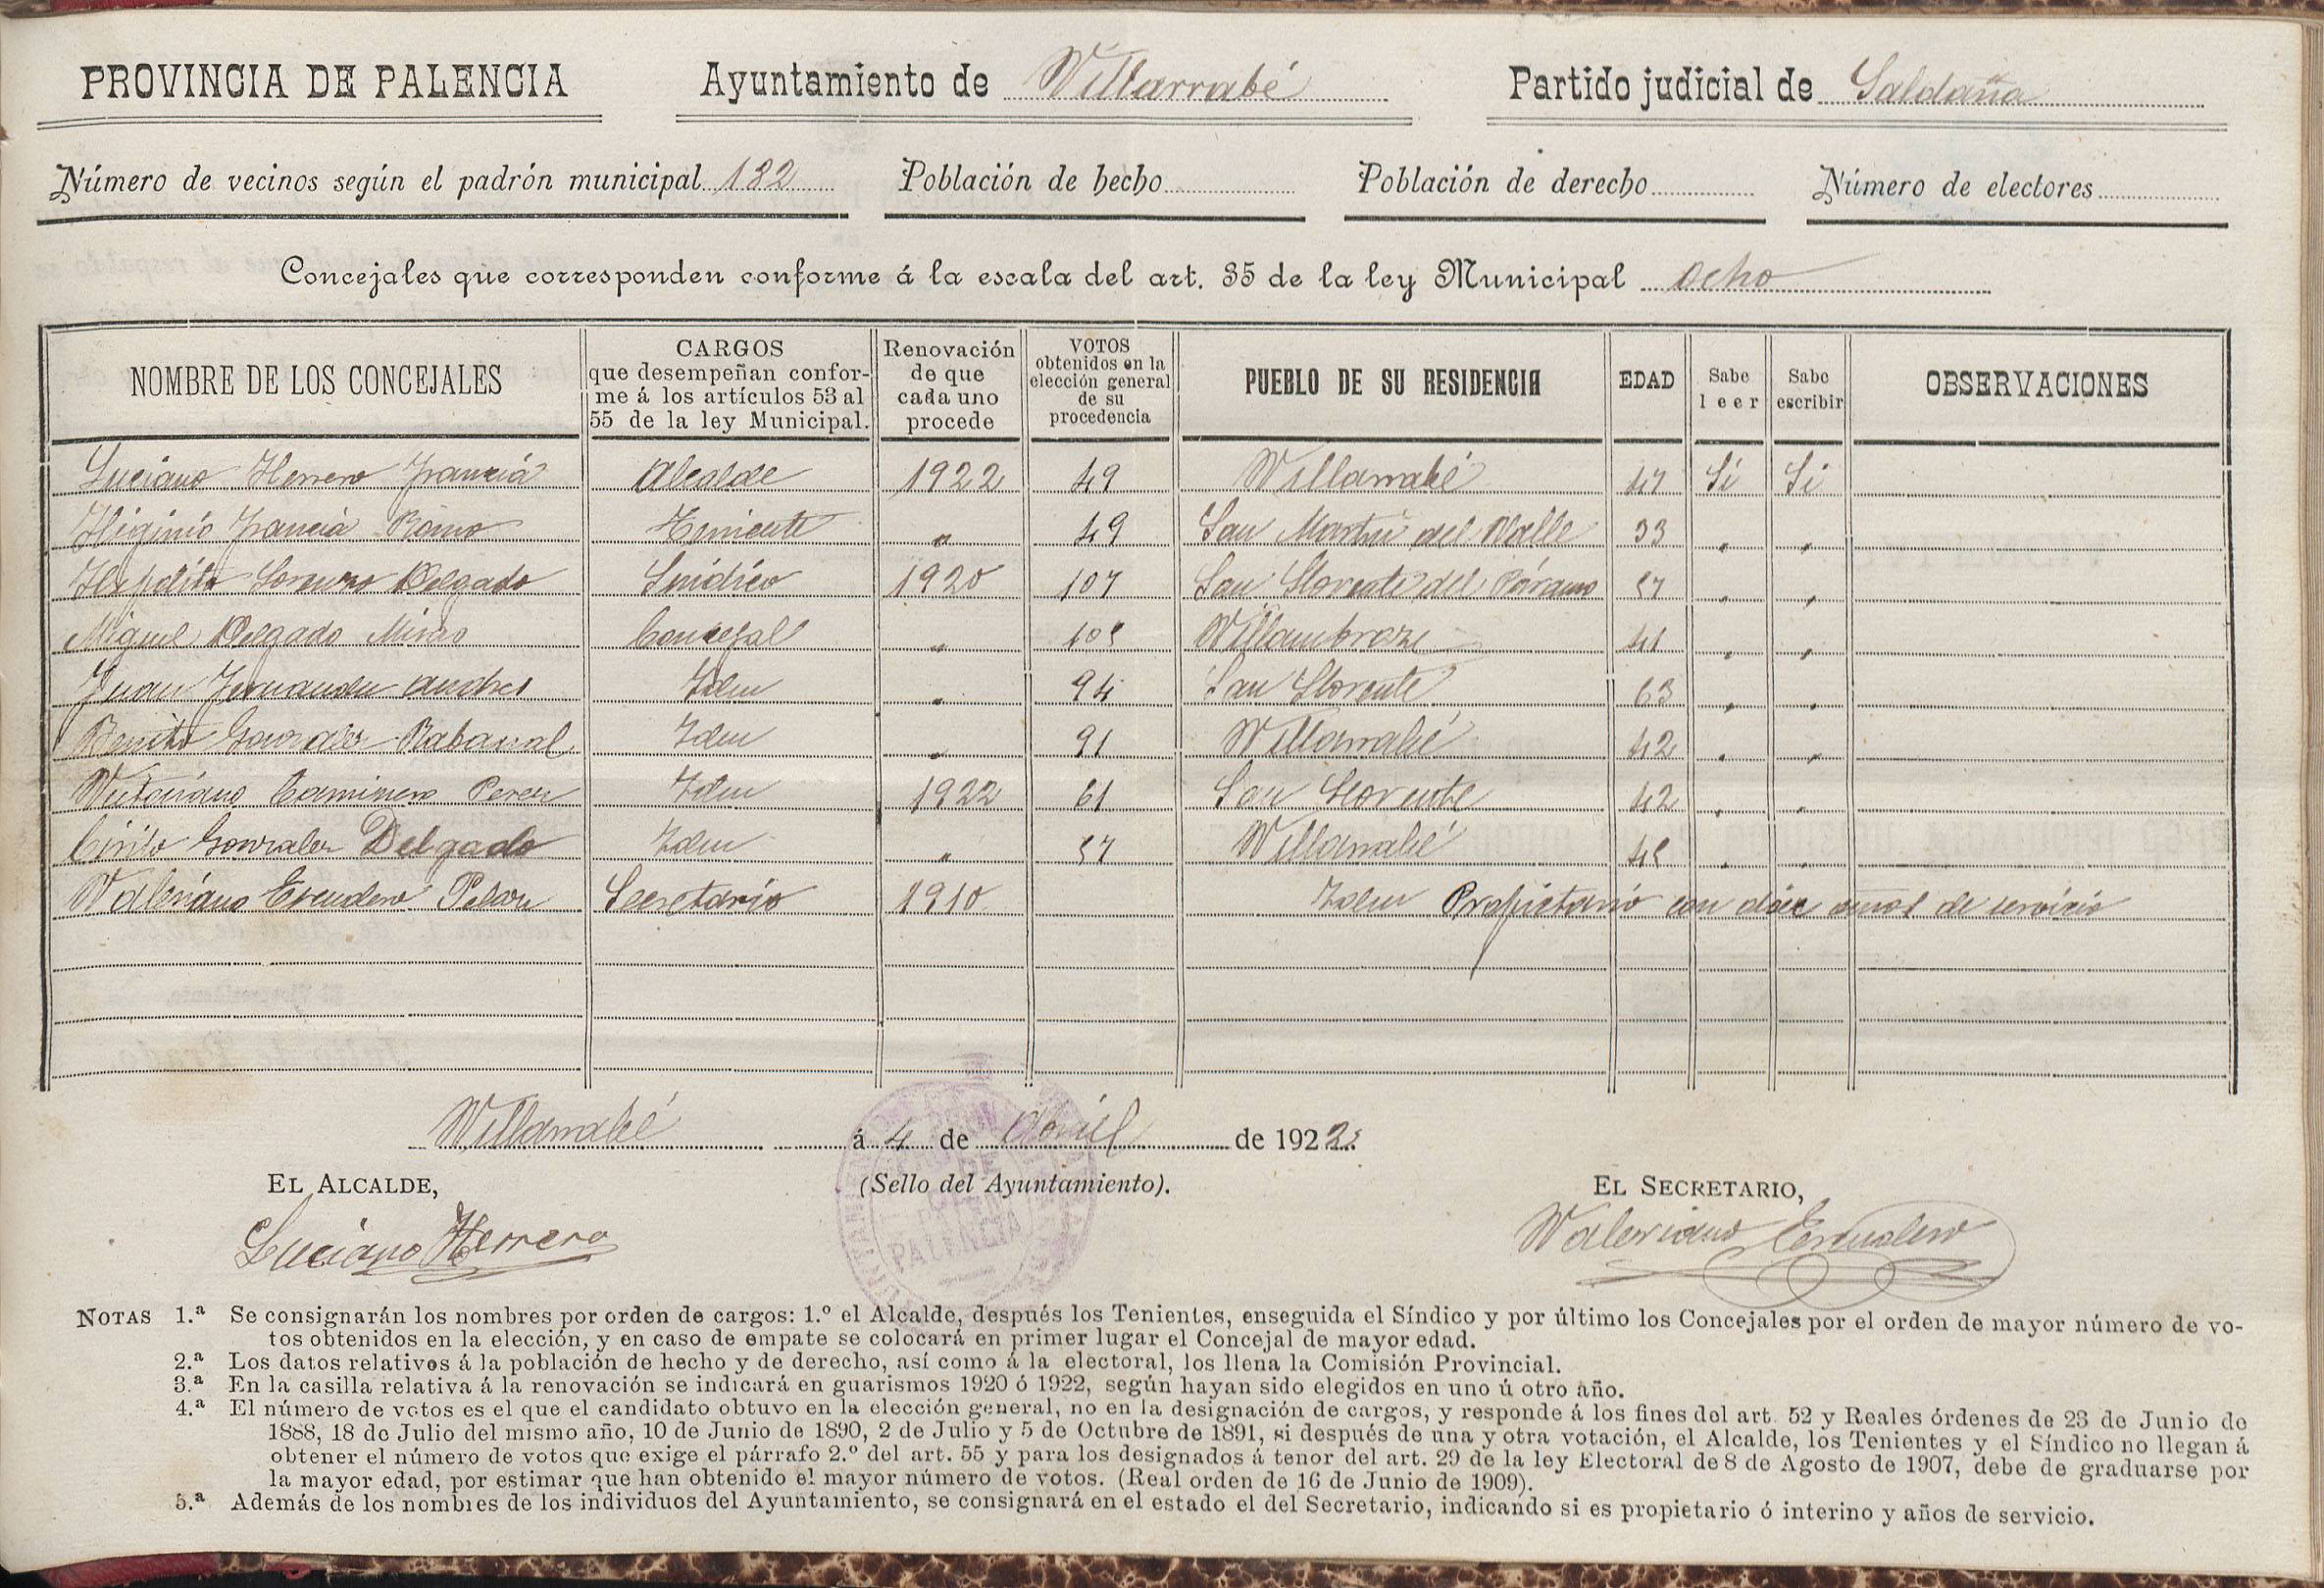 PROVINCIA DE PALENCIA Ayuntamiento de Villarrabé Partido judicial de Saldaña
Número de vecinos según el padrón municipal 182 Población de hecho Población de derecho Número de electores
Concejales que corresponden conforme á la escala del art. 35 de la ley Municipal ocho
NOMBRE DE LOS CONCEJALES CARGOS que desempeñan confor- me á los artículos 53 al 55 de la ley Municipal. Renovación de que cada uno procede VOTOS obtenidos en la elección general de su procedencia PUEBLO DE SU RESIDENCIA EDAD Sabe leer Sabe escribir OBSERVACIONES
Luciano Herrero Francia Alcalde 1922 49 Villarrabé 47 Si Si
Higinio Francia Romo Teniente " 49 San Martin del Valle 33 " "
Hipolito Lorenzo Delgado Sindico 1920 107 San Llorente del Páramo 57 " "
Miguel Delgado Concejal " 105 Villambroz 41 " "
Juan Fernandez Andres Idem " 94 San Llorente 63 " "
Benito Gonzalez Rabanal Idem " 91 Villarrabé 42 " "
Victoriano Caminero Perez Idem 1922 61 San Llorente 42 " "
Cirilo Gonzalez Delgado Idem " 57 Villarrabé 45 " "
Valeriano Escudero Secretario 1910 Idem Propietario con doce años de servicio
Villarrabé á 4 de Abril de 1922.
EL ALCALDE, (Sello del Ayuntamiento). EL SECRETARIO,
Luciano Herrero Valeriano Escudero
PALENCIA
NOTAS 1.ª Se consignarán los nombres por orden de cargos: 1.º el Alcalde, después los Tenientes, enseguida el Síndico y por último los Concejales por el orden de mayor número de vo-
tos obtenidos en la elección, y en caso de empate se colocará en primer lugar el Concejal de mayor edad.
2.ª Los datos relativos á la población de hecho y de derecho, así como á la electoral, los llena la Comisión Provincial.
3.ª En la casilla relativa á la renovación se indicará en guarismos 1920 ó 1922, según hayan sido elegidos en uno ú otro año.
4.ª El número de votos es el que el candidato obtuvo en la elección general, no en la designación de cargos, y responde á los fines del art. 52 y Reales órdenes de 23 de Junio de
1888, 18 de Julio del mismo año, 10 de Junio de 1890, 2 de Julio y 5 de Octubre de 1891, si después de una y otra votación, el Alcalde, los Tenientes y el Síndico no llegan á
obtener el número de votos que exige el párrafo 2.º del art. 55 y para los designados á tenor del art. 29 de la ley Electoral de 8 de Agosto de 1907, debe de graduarse por
la mayor edad, por estimar que han obtenido el mayor número de votos. (Real orden de 16 de Junio de 1909).
5.ª Además de los nombres de los individuos del Ayuntamiento, se consignará en el estado el del Secretario, indicando si es propietario ó interino y años de servicio.